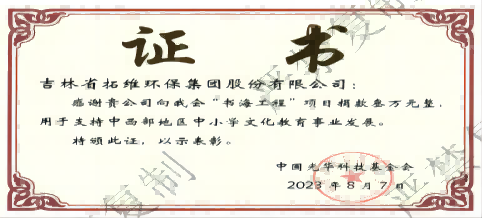 证书
吉林省拓维环保集团股份有限公司：
感谢贵公司向我会“书海工程”项目捐款叁万元整，
用于支持中西部地区中小学文化教育事业发展。
特颁此证，以示表彰。
中国光华科技基金会
2023年8月7日
严禁复制
严禁复制